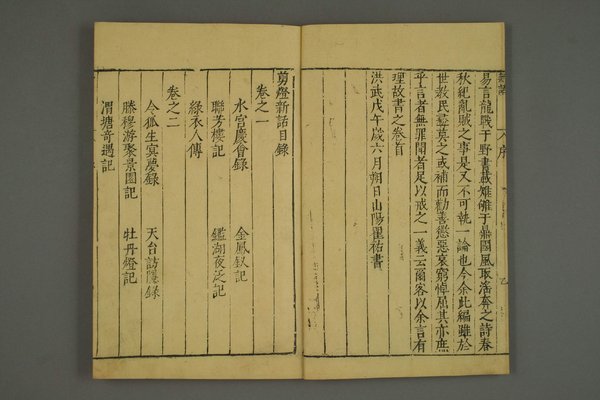 易言龍戰于野書載雉雊于鼎國風取淫奔之詩春
秋紀亂賊之事是又不可執一論也今余此編雖於
世敎民彝莫之或補而勸善懲惡哀窮悼屈其亦庶
乎言者無罪聞者足以戒之一義云爾客以余言有
理故書之卷首
洪武戊午歲六月朔日山陽瞿祐書
剪燈新話目錄
卷之一
水宮慶會錄 金鳳釵記
聯芳樓記 鑑湖夜泛記
綠衣人傳
卷之二
令狐生冥夢錄 天台訪隱錄
滕穆游聚景園記 牡丹燈記
渭塘奇遇記